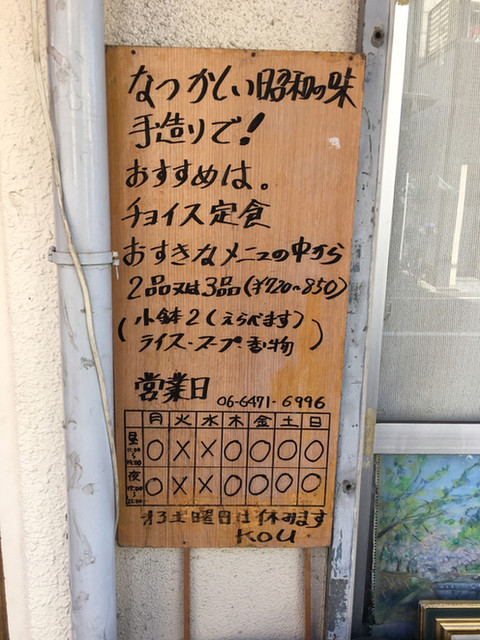 なつかしい昭和の味
手造りで!
おすすめは。
チョイス定食
おすきなメニューの中から
2品又は3品(¥720~850)
(小鉢2(えらべます)
ライス・スープ・香物)
営業日 06-6471-6996
月 火 水 木 金 土 日
昼 ○ × × ○ ○ ○ ○
夜 ○ × × ○ ○ ○ ○
土曜日は休みます
KOU